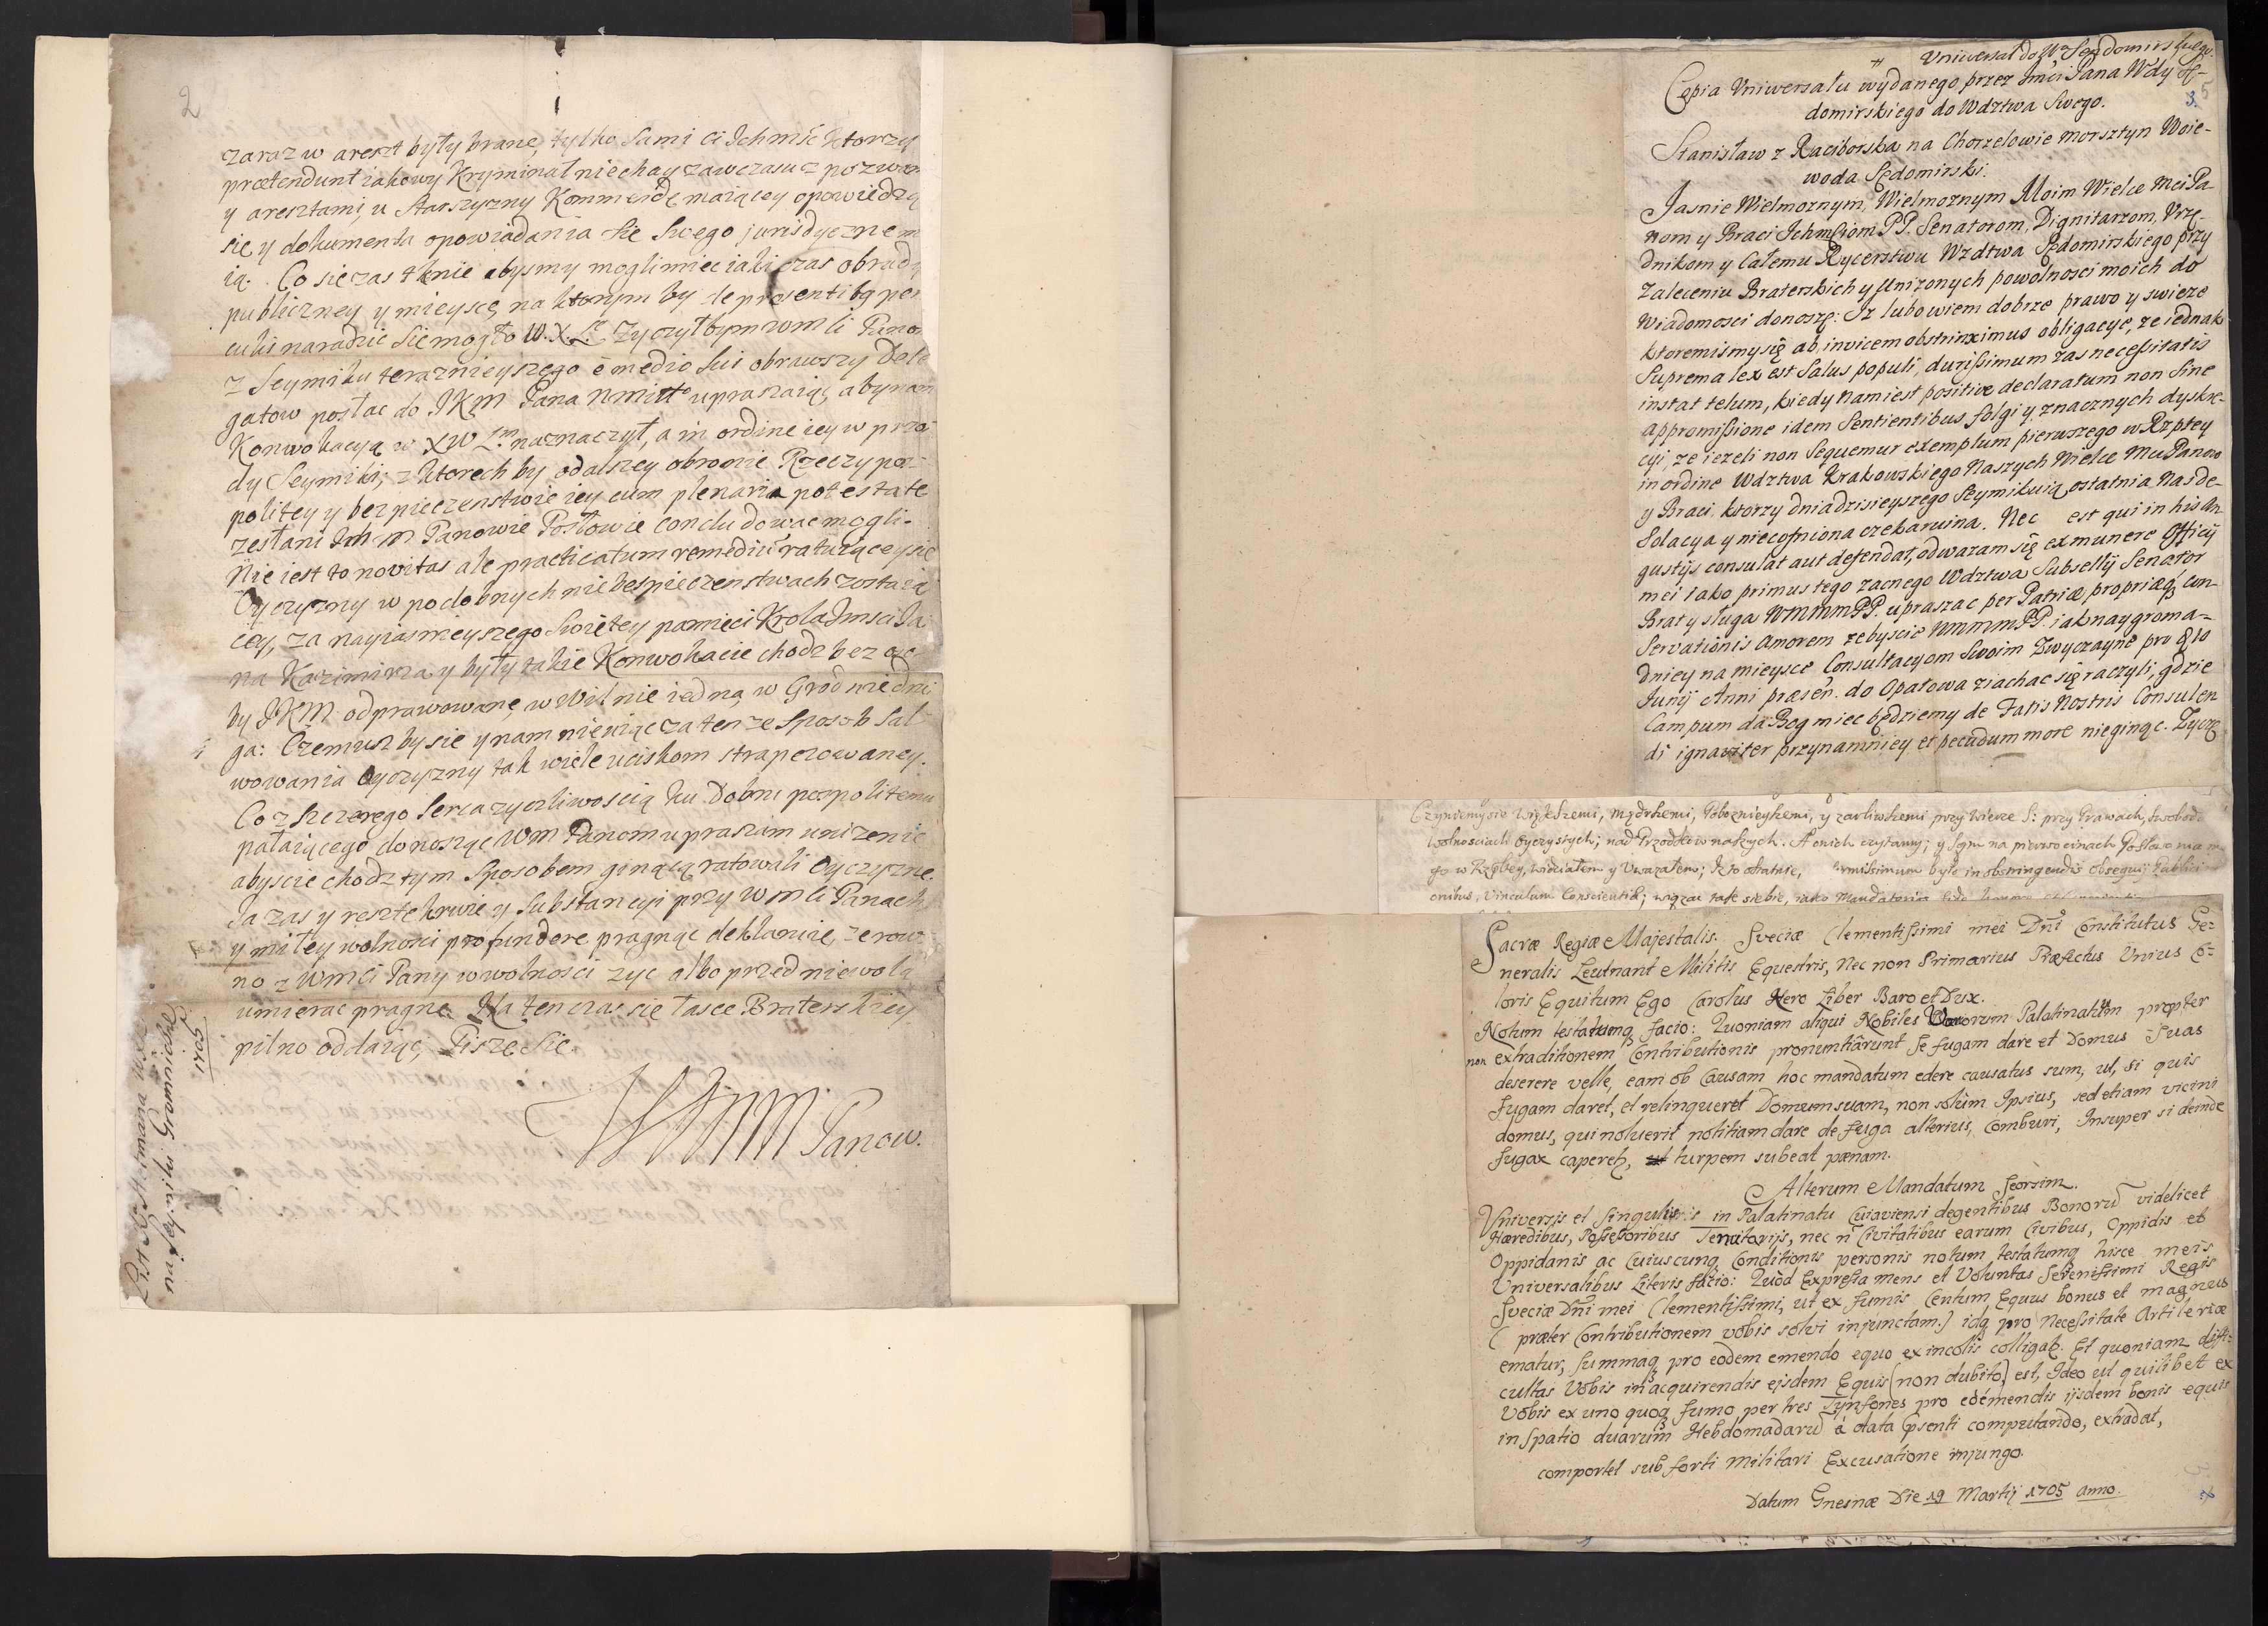 2
zaraz w areszt były brane, tylko sami ci Ichmść ktorzy
prætendunt iakowy Kryminał niechay zawczasu z pozwa
y aresztami, u Starszyzny Kommędę maiącey opowiedzą
się y dokumenta opowiadania się swego jurisdycznem
ią. Co się zas tknie abysmy mogli miec iaki czas obrady
publiczney y mieysce, na ktorym by de præsentibg peri
culis naradzic się mogło W.X.L. Zyczyłbym wm li Pano
z Seymiku teraznieyszego è medio sui obrawszy Dele
gatow posłac do JKM Pana nmitte upraszaiąc, aby nam
Konwokacyą w XWLm naznaczył, a in ordine iey w prze
dy Seymiki, z ktorech by odalszey obronie Rzeczypos
politey y bezpieczenstwie iey cum plenaria potestate
zesłani Ich m Panowie Posłowie concludowac mogli.
Nie iest to novitas ale practicatum remediũ ratuiącey się
Oyczyzny w podobnych niebespieczenstwach zostaią
cey, za nayiasnieyszego swiętey pamięci Krola Jmsci Ja
na Kazimirza y były takie Konwokacie chodz bez oso
by JKM odprawowane, w Wilnie iedna, w Grodnie dru
ga: Czemusz by się y nam niewiąc za tenze sposob sal
wowania Oyczyzny tak wiele uciskom straperowaney.
Co z szczerego serca zyczliwoscią ku Dobru pospolitemu
pałaiącego donosząc Wm Panom upraszam unizenie
abyscie chodz tym sposobem ginącą ratowali Oyczyznę.
Ja zas y resztę krwie y substancyi przy Wm li Panach
y miłey wolnosci profundere pragnąc deklaruię, ze row
no z Wmci Pany w wolnosci zyc albo przed niewolą
umierac pragnę. Na ten czas się łasce Braterskiey
pilno oddaiąc, Piszę się.
WMM Panow.
1705
Uniwersał do Wa Sendomirskiego
Copia Uniwersału wydanego przez Jmci Pana Wdy Sę-
domirskiego do Wdztwa Swego.
3. 5
Stanisław z Raciborska na Chorzelowie Morsztyn Woie-
woda Sędomirski.
Jasnie Wielmoznym, Wielmoznym Moim Wielce Mci Pa-
nom y Braci Ichmsciom PP. Senatorom, Dignitarzom, Vrzę-
dnikom y Całemu Rycerstwu Wzdtwa Sędomirskiego przy
zaleceniu Braterskich y Unizonych powolnosci moich do
Wiadomosci donoszę: Iz lubo wiem dobrze prawo y swieze
ktoremismy się ab invicem obstrinximus obligacye, ze iednak
Suprema lex est Salus populi, durissimum zas necessitatis
instat telum, kiedy nam iest positive declaratum non sine
appromissione idem sentientibus folgi y znacznych dyskre-
cyi, ze iezeli non sequemur exemplum pierwszego w Rzptey
in ordine Wdztwa Krakowskiego Naszych Wielce Mci Panow
y Braci, ktorzy dnia dzisieyszego Seymikuią, ostatnia nas de-
solacya y niecofniona czeka ruina. Nec est qui in his An
gustijs consulat aut defendat, odwazam się ex munere Officij
mei iako primus tego zacnego Wdztwa Subsellij Senator
Brat y sługa WMMMPP. upraszac per Patriæ propriæq con-
servationis amorem zebyscie WMMMPP. iak naygroma-
dniey na mieysce Consultacyom Swoim Zwyczayne pro 8 10
Junij Anni præsen. do Opatowa ziachac się raczyli; gdzie
Campum da Bog miec będziemy de Fatis Nostris Consulen
di ignaviter przynamniey et pecudum more nieginąc. Zyczę
Czyniemy sie większemi, mędrszemi, Poboznieyszemi, y zarliwszemi przy Wierze S: przy Prawach, Swobod
wolnosciach Oyczystych; nad Przodkow naszych. A onich czytamy; y Sam na pierwocinach Posłowania m
go w Rzptey, widziałem y Uwazałem; Iz to ostatnie, firmissimum było in obstringendis Obsequij Publici
Sacræ Regiæ Majestatis. Sveciæ Clementissimi mei Dñi Constitutus Ge=
neralis Leutnant Militis Equestris, Nec non Primarius Præfectus Unius Co=
loris Equitum Ego Carolus Nero Liber Baro et Dux.
Notum testatumq facio: Quoniam aliqui Nobiles Palatinatum propter
non extraditionem Contributionis pronuntiârunt Se fugam dare et Domus Suas
deserere velle, eam ob Causam hoc mandatum edere causatus sum, ut, si quis
Fugam daret, et relinqueret Domum suam, non solùm Ipsius, sed etiam vicini
domus, qui noluerit notitiam dare de fuga alterius, Comburi, Insuper si deinde
fugax caperet, turpem subeat pænam.
Alterum Mandatum Seorsim.
Vniversis et Singulis in Palatinatu Cuiaviensi degentibus Bonorũ videlicet
Hæredibus, Possessoribus Tenutorijs, nec ñ Civitatibus earum Civibus, Oppidis et
Oppidanis ac Cuiuscunq Conditionis personis notum testatumq hisce meis
Universalibus Literis facio: Quòd Expressa mens et Voluntas Serenissimi Regis
Sveciæ Dñi mei Clementissimi, ut ex fumis Centum Equus bonus et magnus
(præter Contributionem vobis solvi injunctam.) idq pro Necessitate Artileriæ
ematur, Summaq pro eodem emendo equo ex incolis colligat. Et quoniam diffi=
cultas Vobis in acquirendis ejsdem Equis (non dubito) est, Ideo ut quilibet ex
Vobis ex uno quoq fumo per tres Tynfones pro edémendis ijsdem bonis equis
in Spatio duarum Hebdomadarũ à data psenti computando, extradat,
comportet sub forti Militari Excusatione injungo.
Datum Gnesnæ Die 19 Martij 1705 anno.